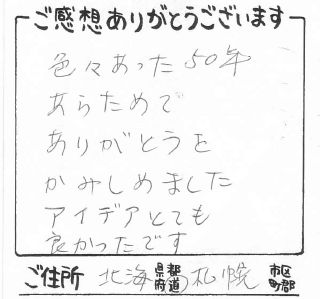 ご感想ありがとうございます
色々あった50年
あらためで
ありがとうを
かみしめました
アイデアとても
良かったです
ご住所 北海 都道府県 札幌 市区町郡